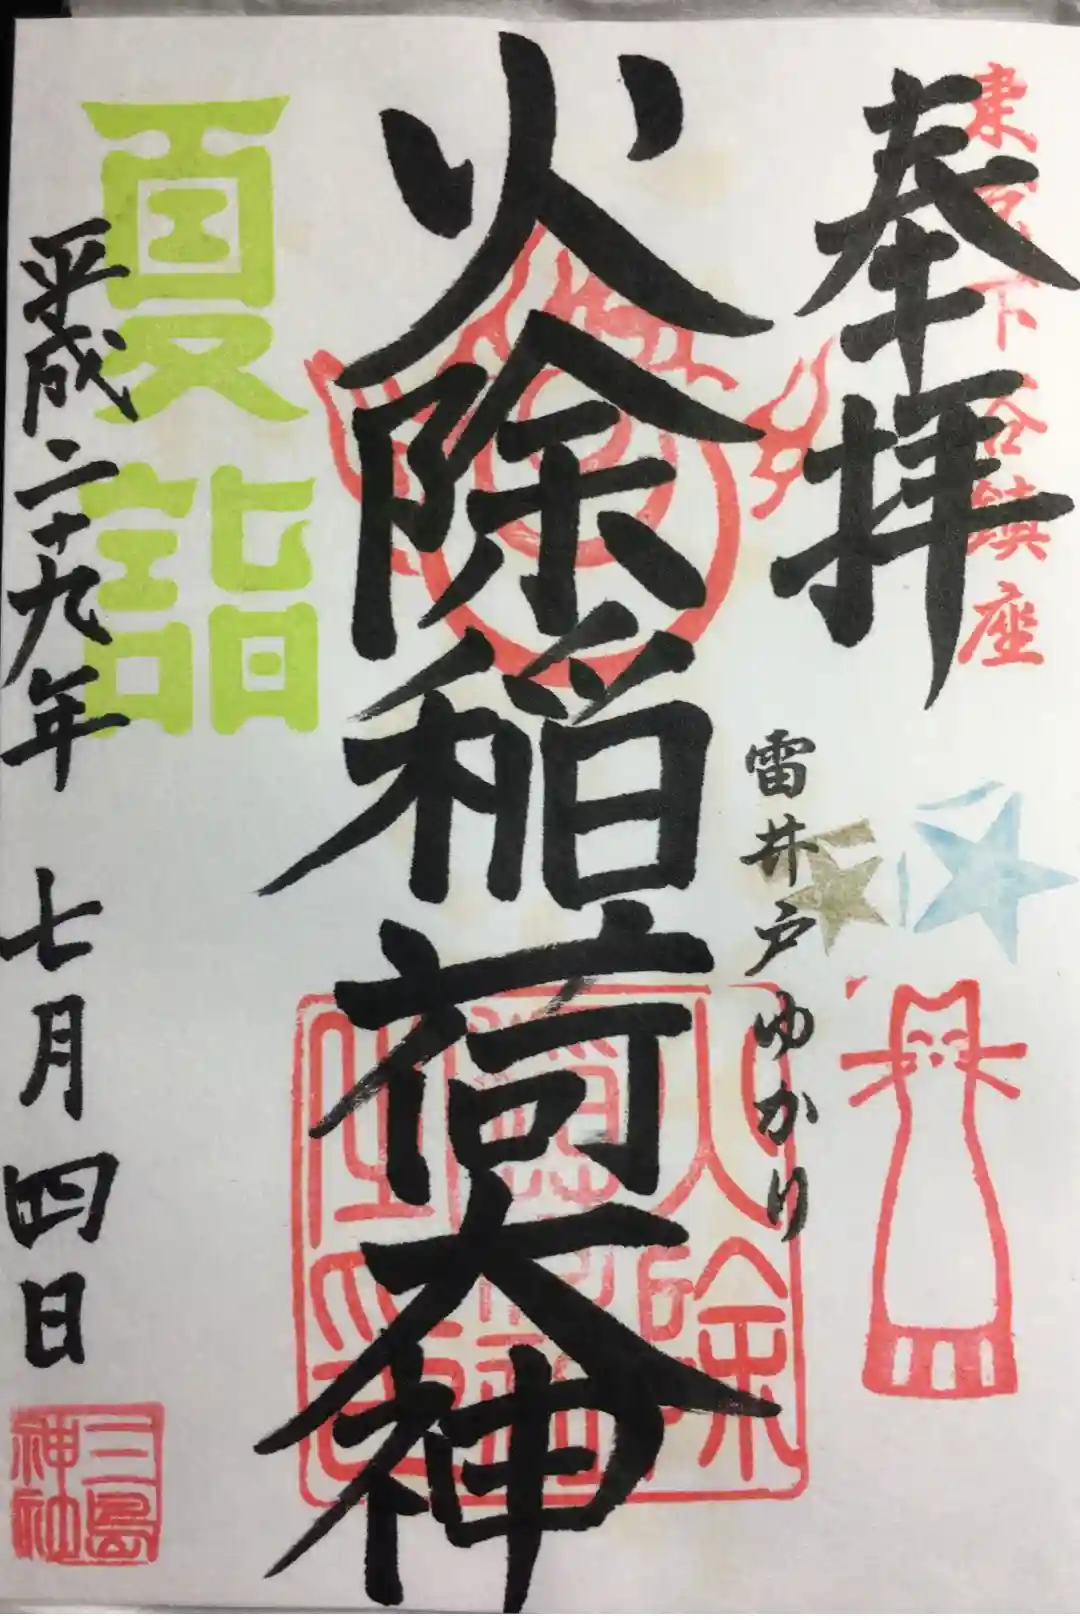 東京下谷鎮座
奉拝
雷井戸ゆかり
火除稲荷大神
夏詣
平成二十九年 七月四日
三島
神社